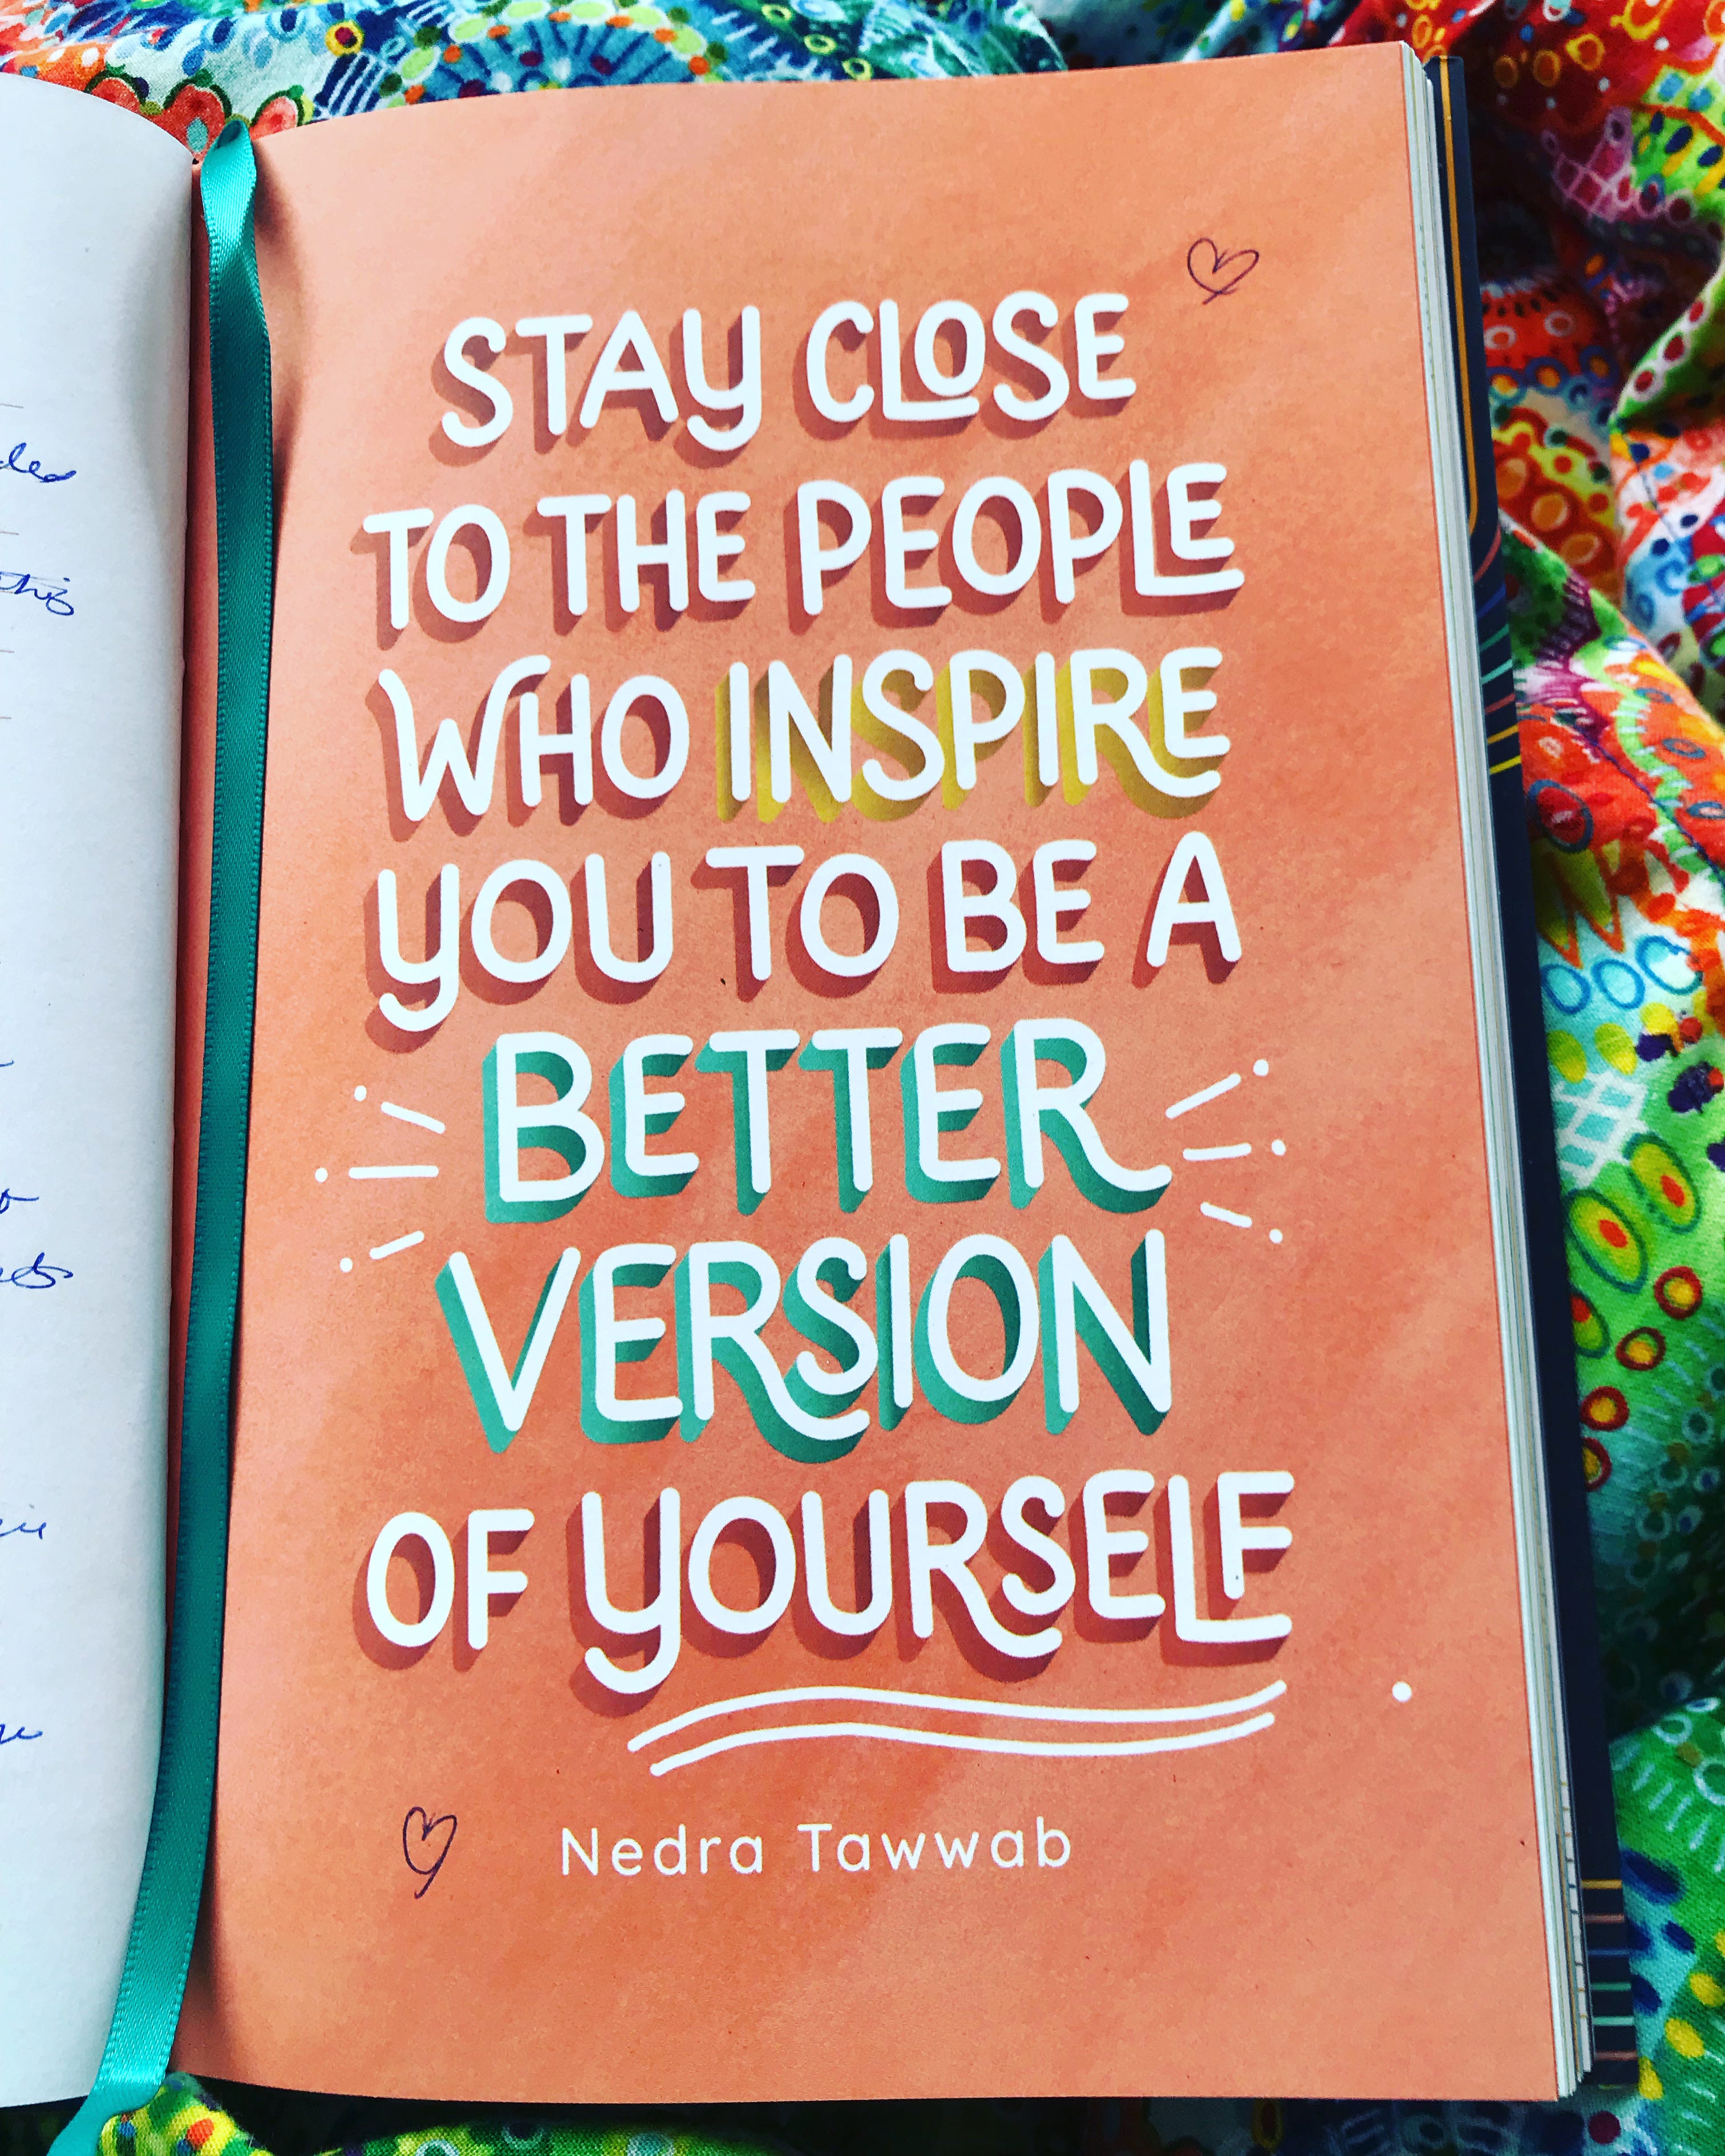 this
STAY CLOSE
TO THE PEOPLE
WHO INSPIRE
YOU TO BE A
BETTER
VERSION
OF YOURSELF
Nedra Tawwab